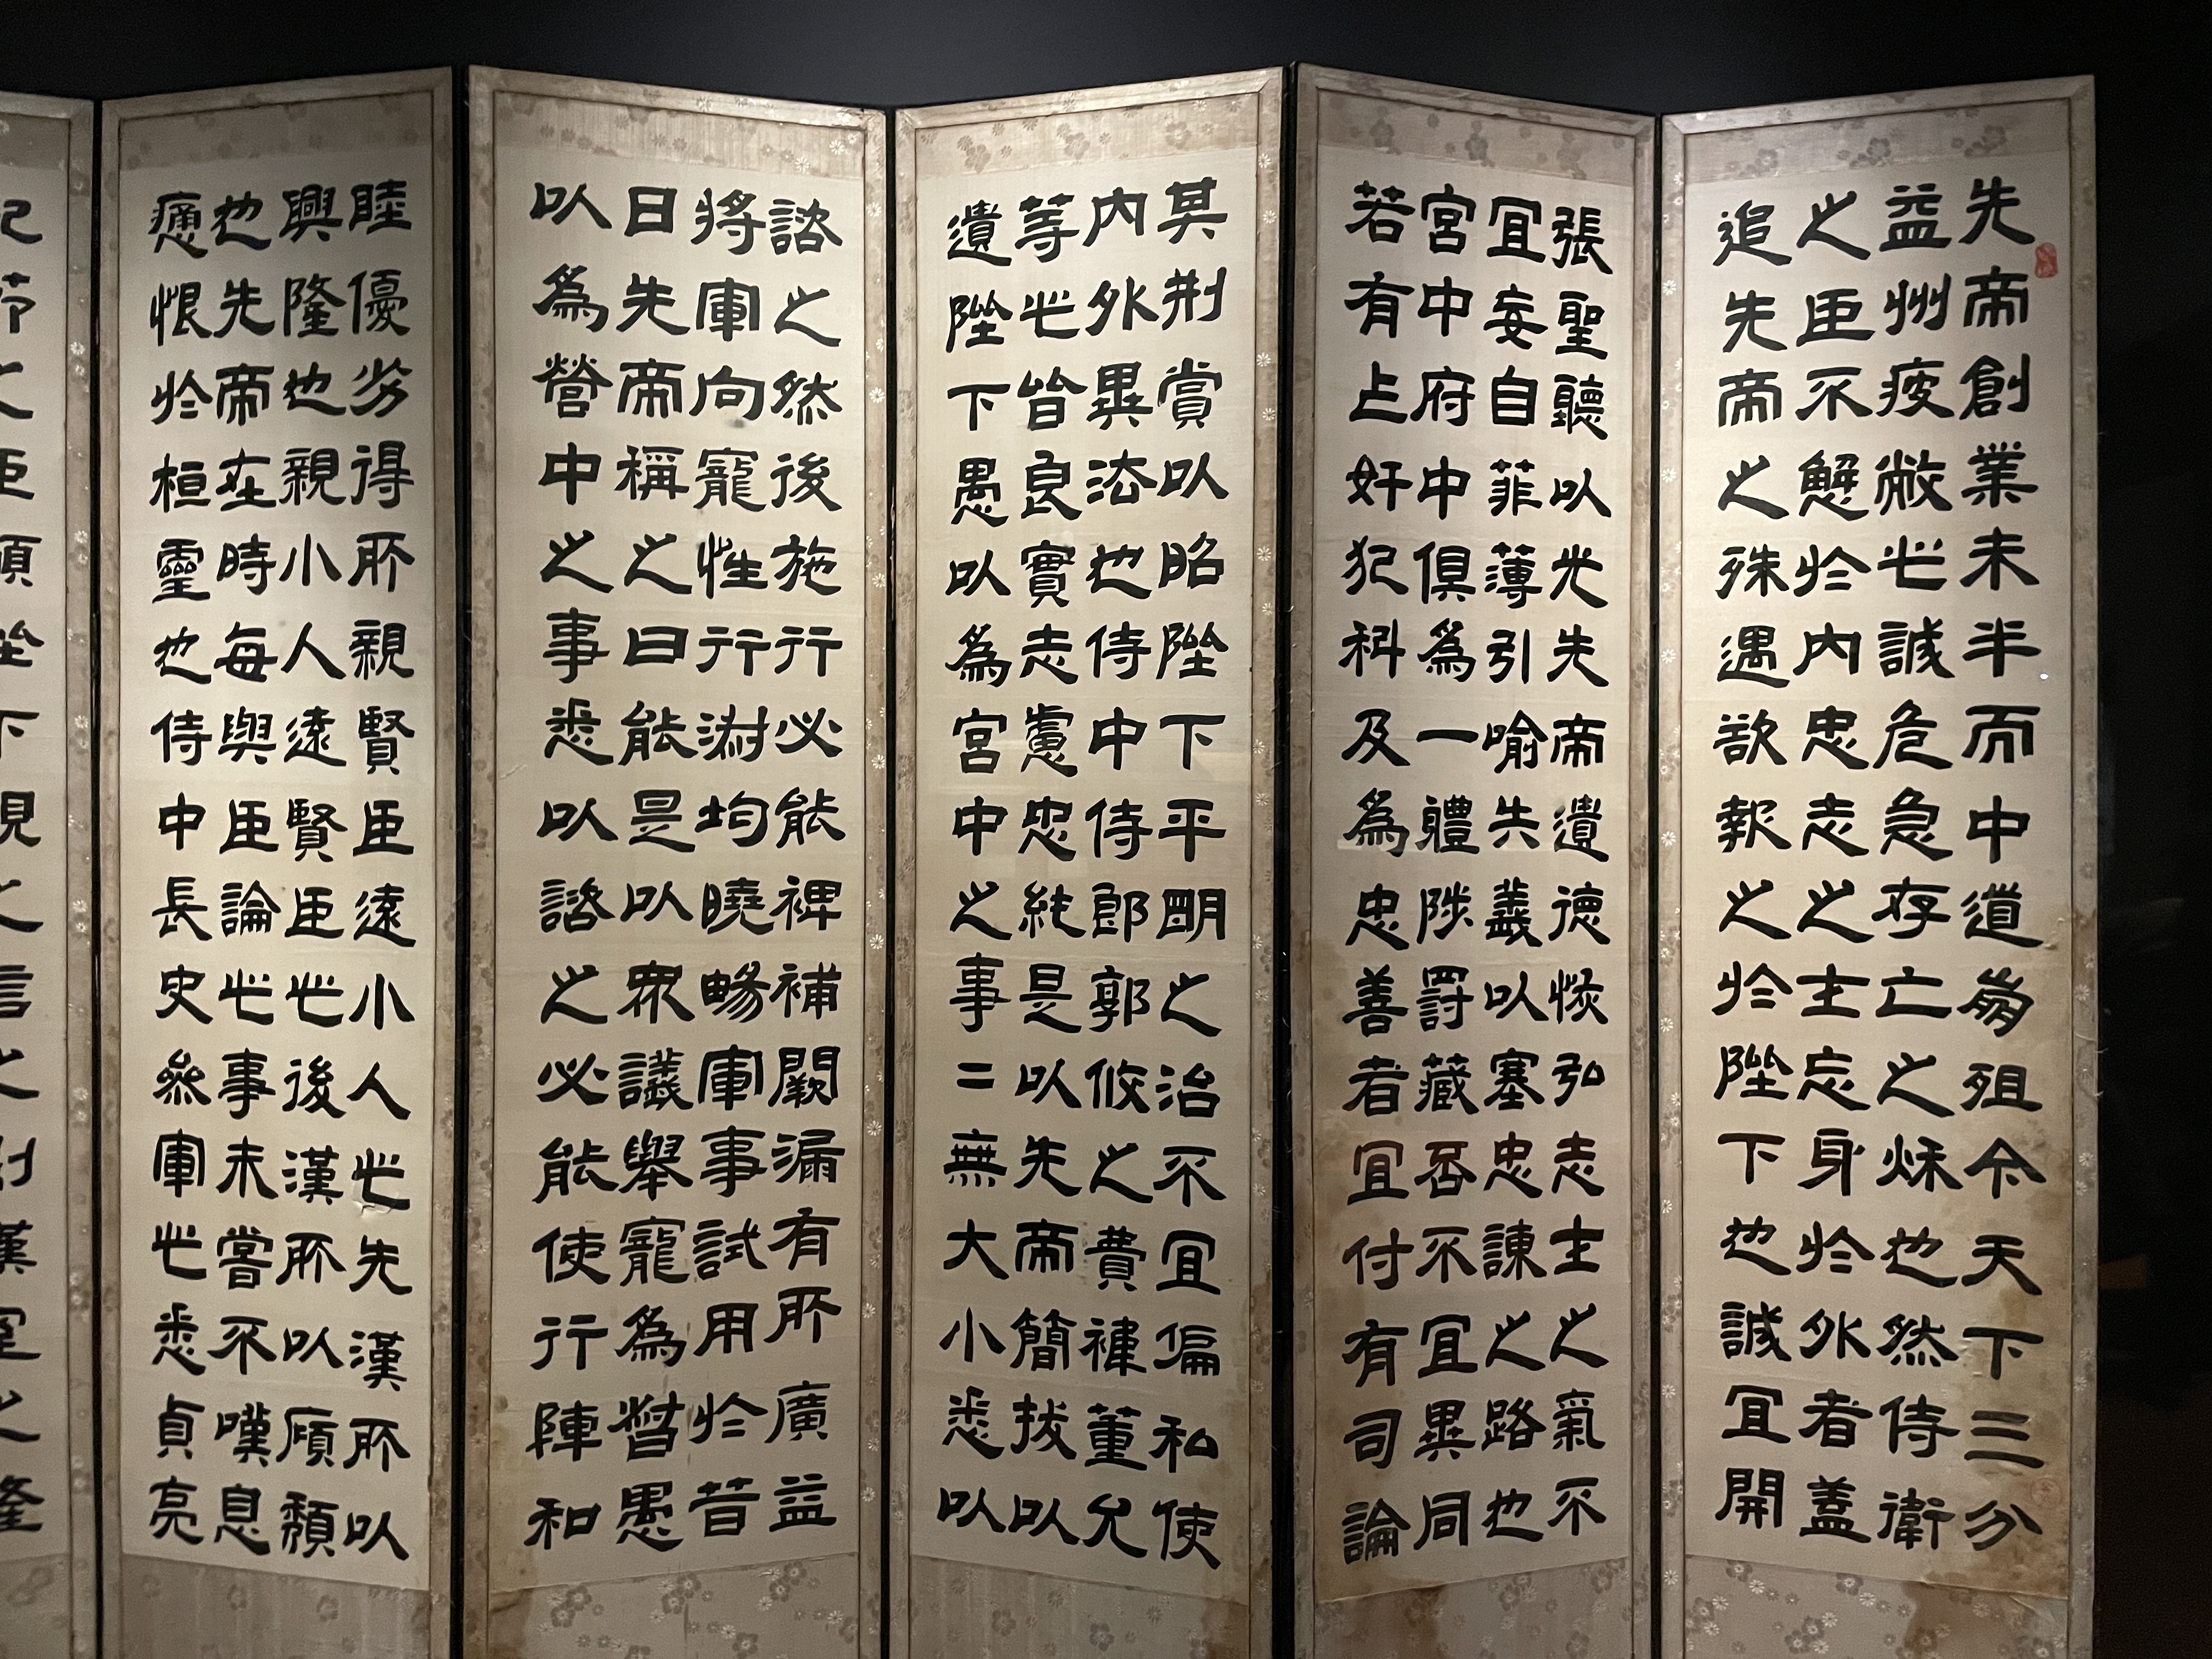 先帝創業未半而中道崩殂今天下三分
益州疲敝此誠危急存亡之秋也然侍衛
之臣不懈於內忠志之士忘身於外者蓋
追先帝之殊遇欲報之於陛下也誠宜開
張聖聽以光先帝遺德恢弘志士之氣不
宜妄自菲薄引喻失義以塞忠諫之路也
宮中府中俱爲一體陟罰藏否不宜異同
若有乍奸犯科及爲忠善者宜付有司論
其刑賞以昭陛下平明之治不宜偏私使
內外異法也侍中侍郎郭攸之費褘董允
等此皆良實志慮忠純是以先帝簡拔以
遺陛下愚以爲宮中之事二無大小悉以
諮之然後施行必能裨補闕漏有所廣益
將軍向寵性行淑均曉暢軍事試用於昔
日先帝稱之曰能是以眾議舉寵爲督愚
以爲營中之事悉以諮之必能使行陣和
睦優劣得所親賢臣遠小人此先漢所以
興隆也親小人遠賢臣此後漢所以傾頹
也先帝在時每與臣論此事未嘗不嘆息
痛恨於桓靈也侍中長史參軍此悉貞亮
節之臣願陛下親之信之則漢室之隆